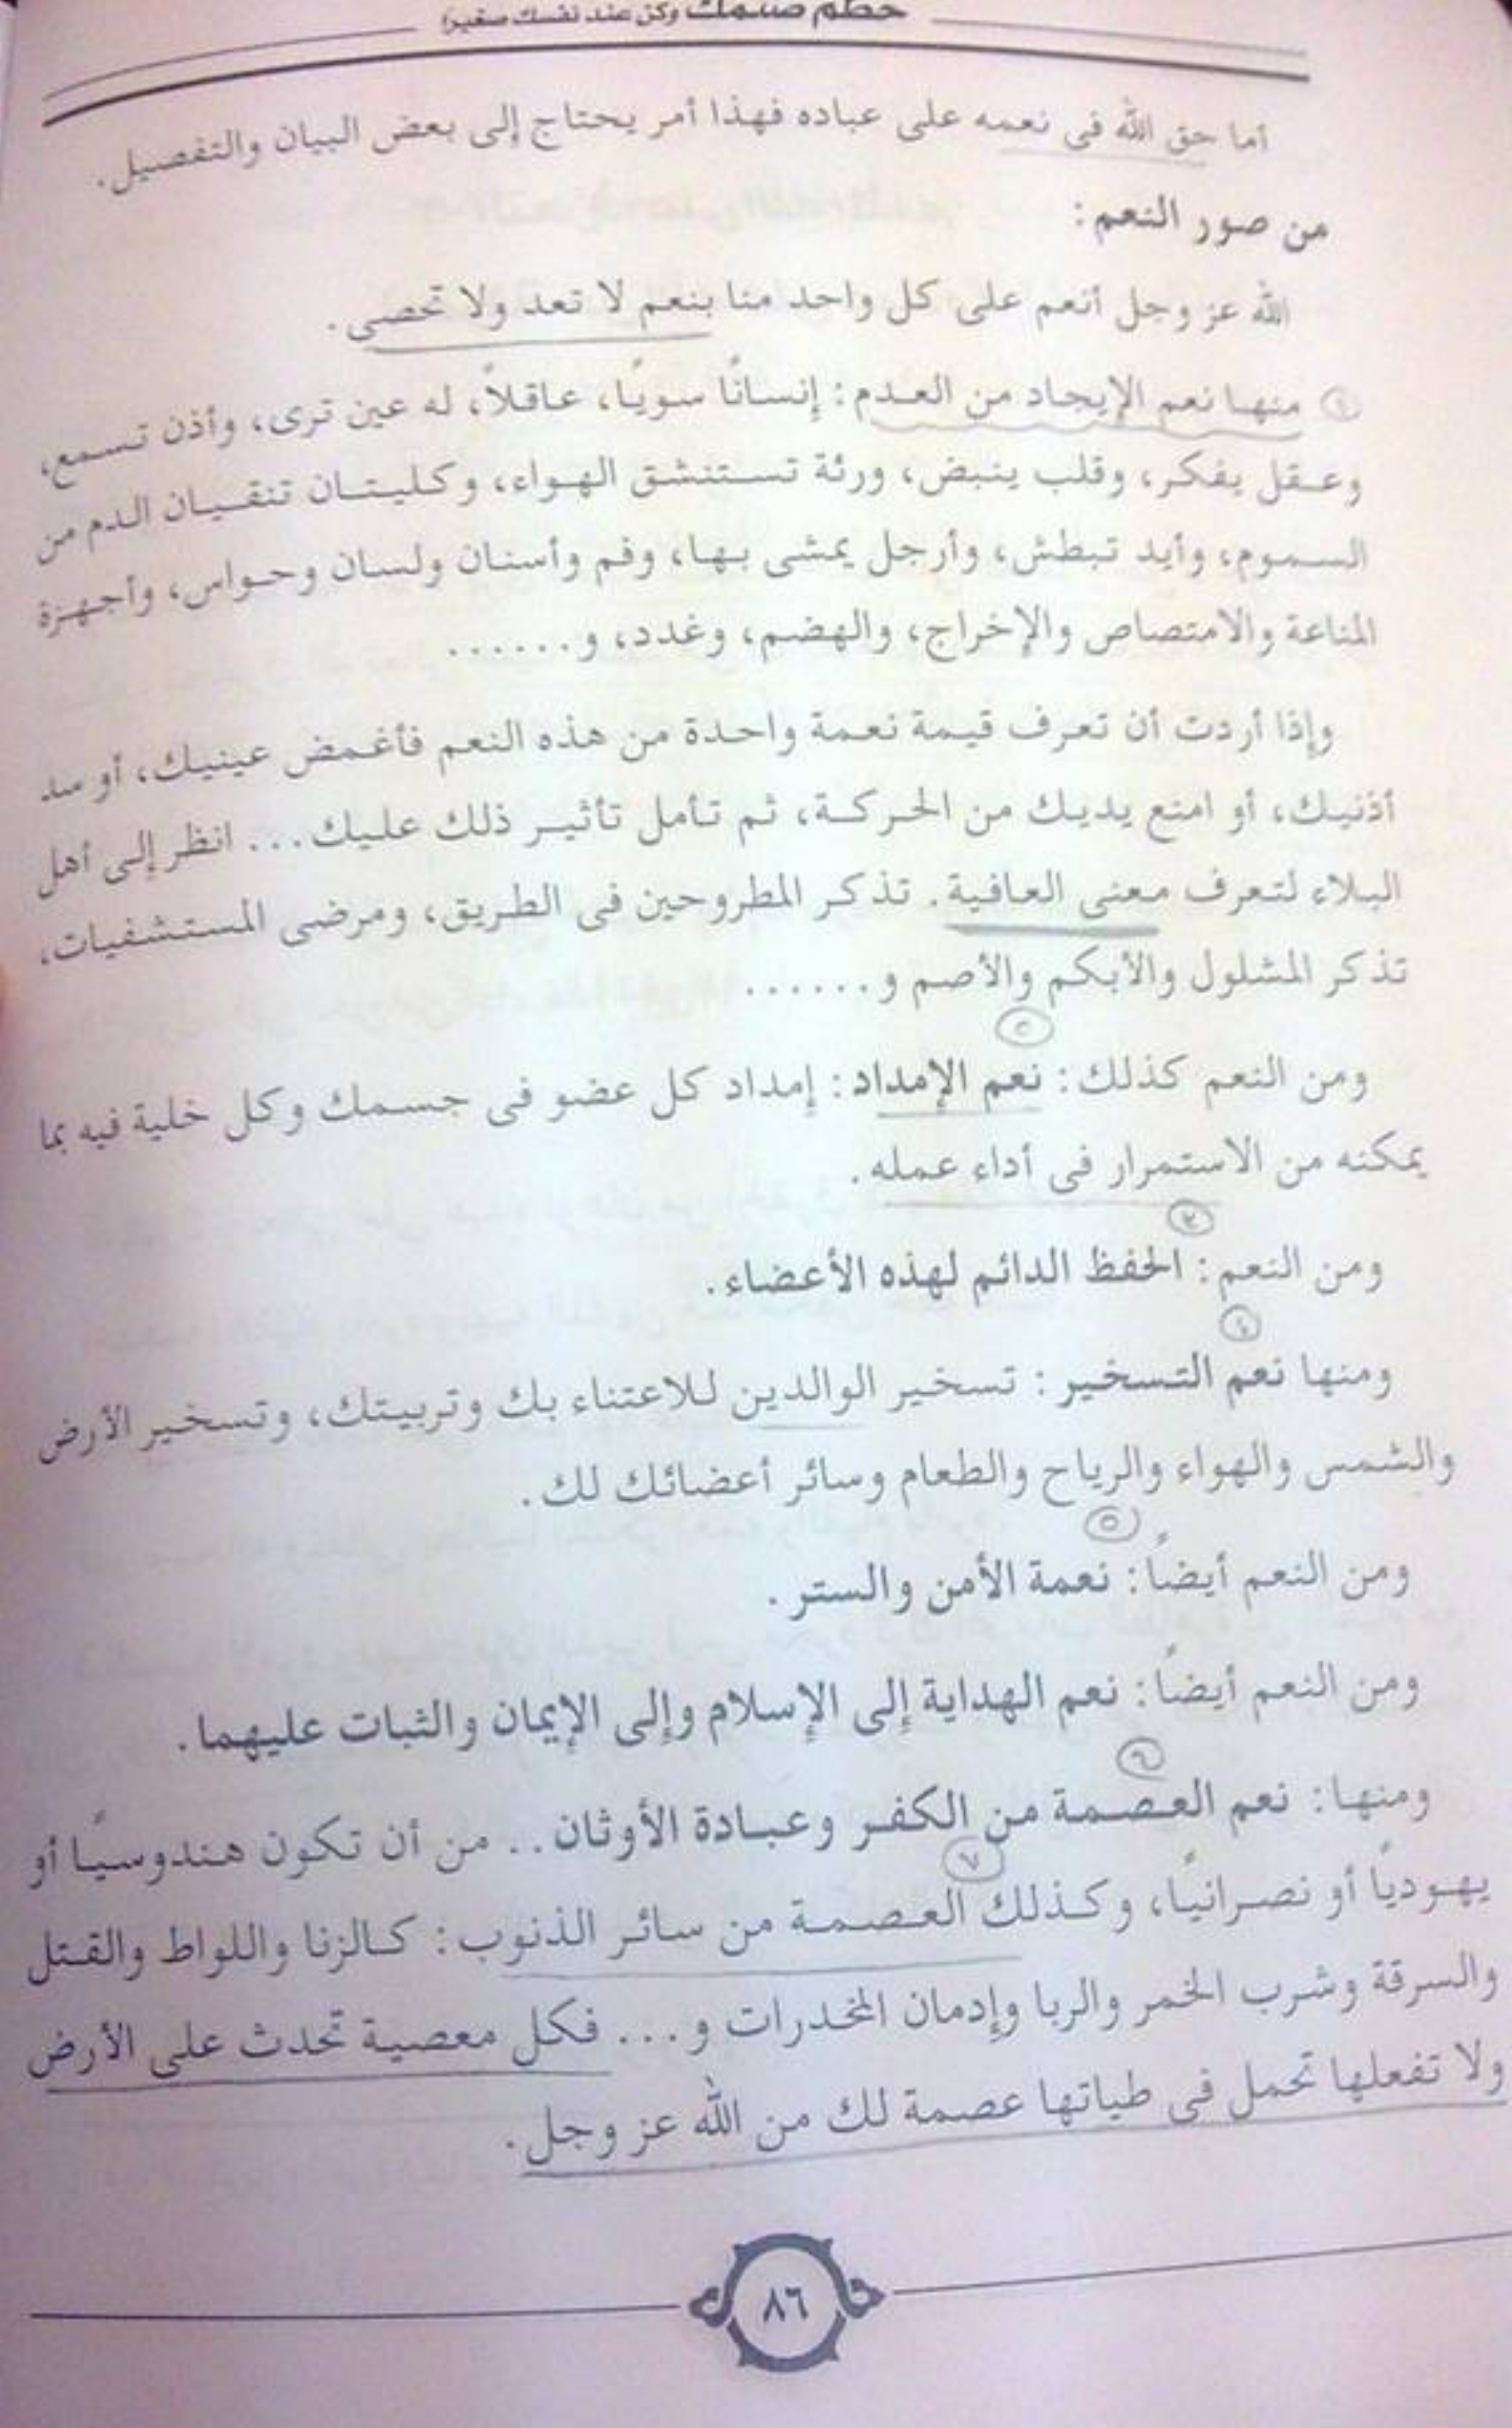 حطم صنمك وكن عند نفسك صغيرا
أما حق الله فى نعمه على عباده فهذا أمر يحتاج إلى بعض البيان والتفصيل.
من صور النعم:
الله عز وجل أنعم على كل واحد منا بنعم لا تعد ولا تحصى.
منها نعم الإيجاد من العدم: إنسانًا سويًا، عاقلاً، له عين ترى، وأذن تسمع،
وعقل يفكر، وقلب ينبض، ورئة تستنشق الهواء، وكليتان تنقيان الدم من
السموم، وأيد تبطش، وأرجل يمشى بها، وفم وأسنان ولسان وحواس، وأجهزة
المناعة والامتصاص والإخراج، والهضم، وغدد، و......
وإذا أردت أن تعرف قيمة نعمة واحدة من هذه النعم فأغمض عينيك، أو سد
أذنيك، أو امنع يديك من الحركة، ثم تأمل تأثير ذلك عليك... انظر إلى أهل
البلاء لتعرف معنى العافية. تذكر المطروحين فى الطريق، ومرضى المستشفيات،
تذكر المشلول والأبكم والأصم و......
ومن النعم كذلك: نعم الإمداد: إمداد كل عضو فى جسمك وكل خلية فيه بما
يمكنه من الاستمرار فى أداء عمله.
ومن النعم: الحفظ الدائم لهذه الأعضاء.
٤
ومنها نعم التسخير: تسخير الوالدين للاعتناء بك وتربيتك، وتسخير الأرض
والشمس والهواء والرياح والطعام وسائر أعضائك لك.
٥
ومن النعم أيضًا: نعمة الأمن والستر.
ومن النعم أيضًا: نعم الهداية إلى الإسلام وإلى الإيمان والثبات عليهما.
٦
ومنها: نعم العصمة من الكفر وعبادة الأوثان.. من أن تكون هندوسيًا أو
٧
يهوديًا أو نصرانيًا، وكذلك العصمة من سائر الذنوب: كالزنا واللواط والقتل
والسرقة وشرب الخمر والربا وإدمان المخدرات و... فكل معصية تحدث على الأرض
ولا تفعلها تحمل فى طياتها عصمة لك من الله عز وجل.
٨٦